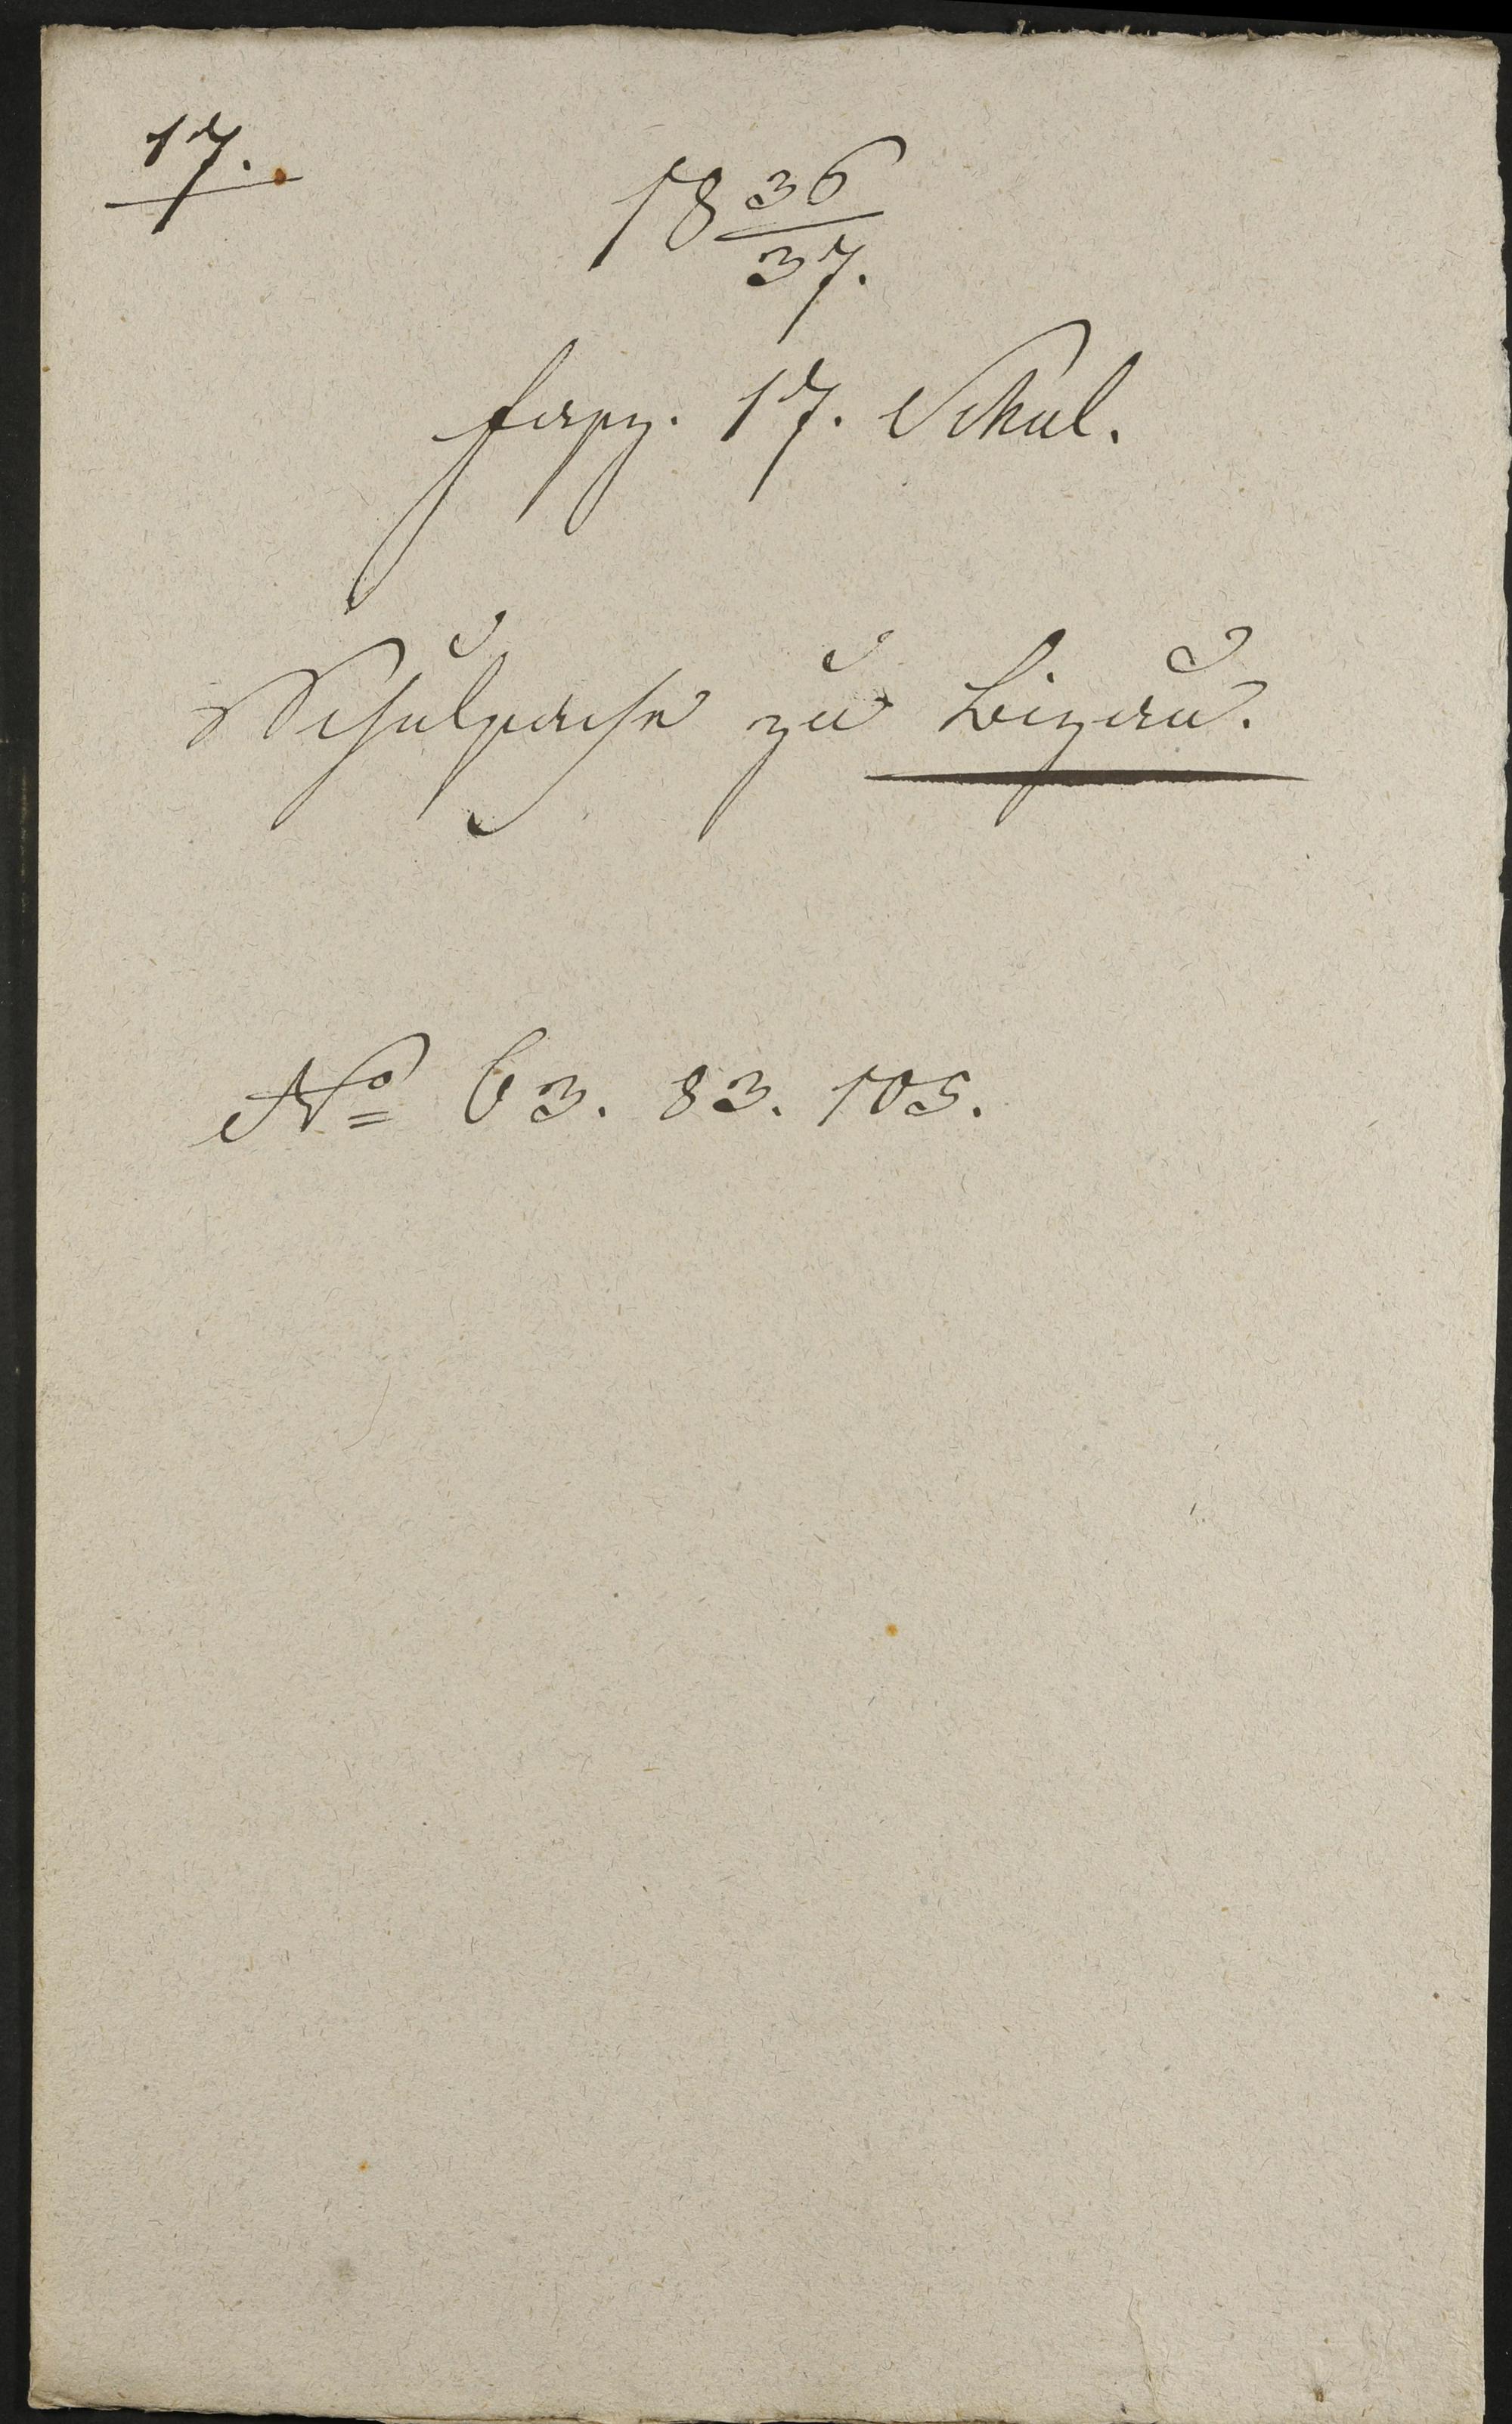 17.
18 36/37.
fasz. 17. Schul.
Schulsache zu Bizau.
No 63. 83. 105.